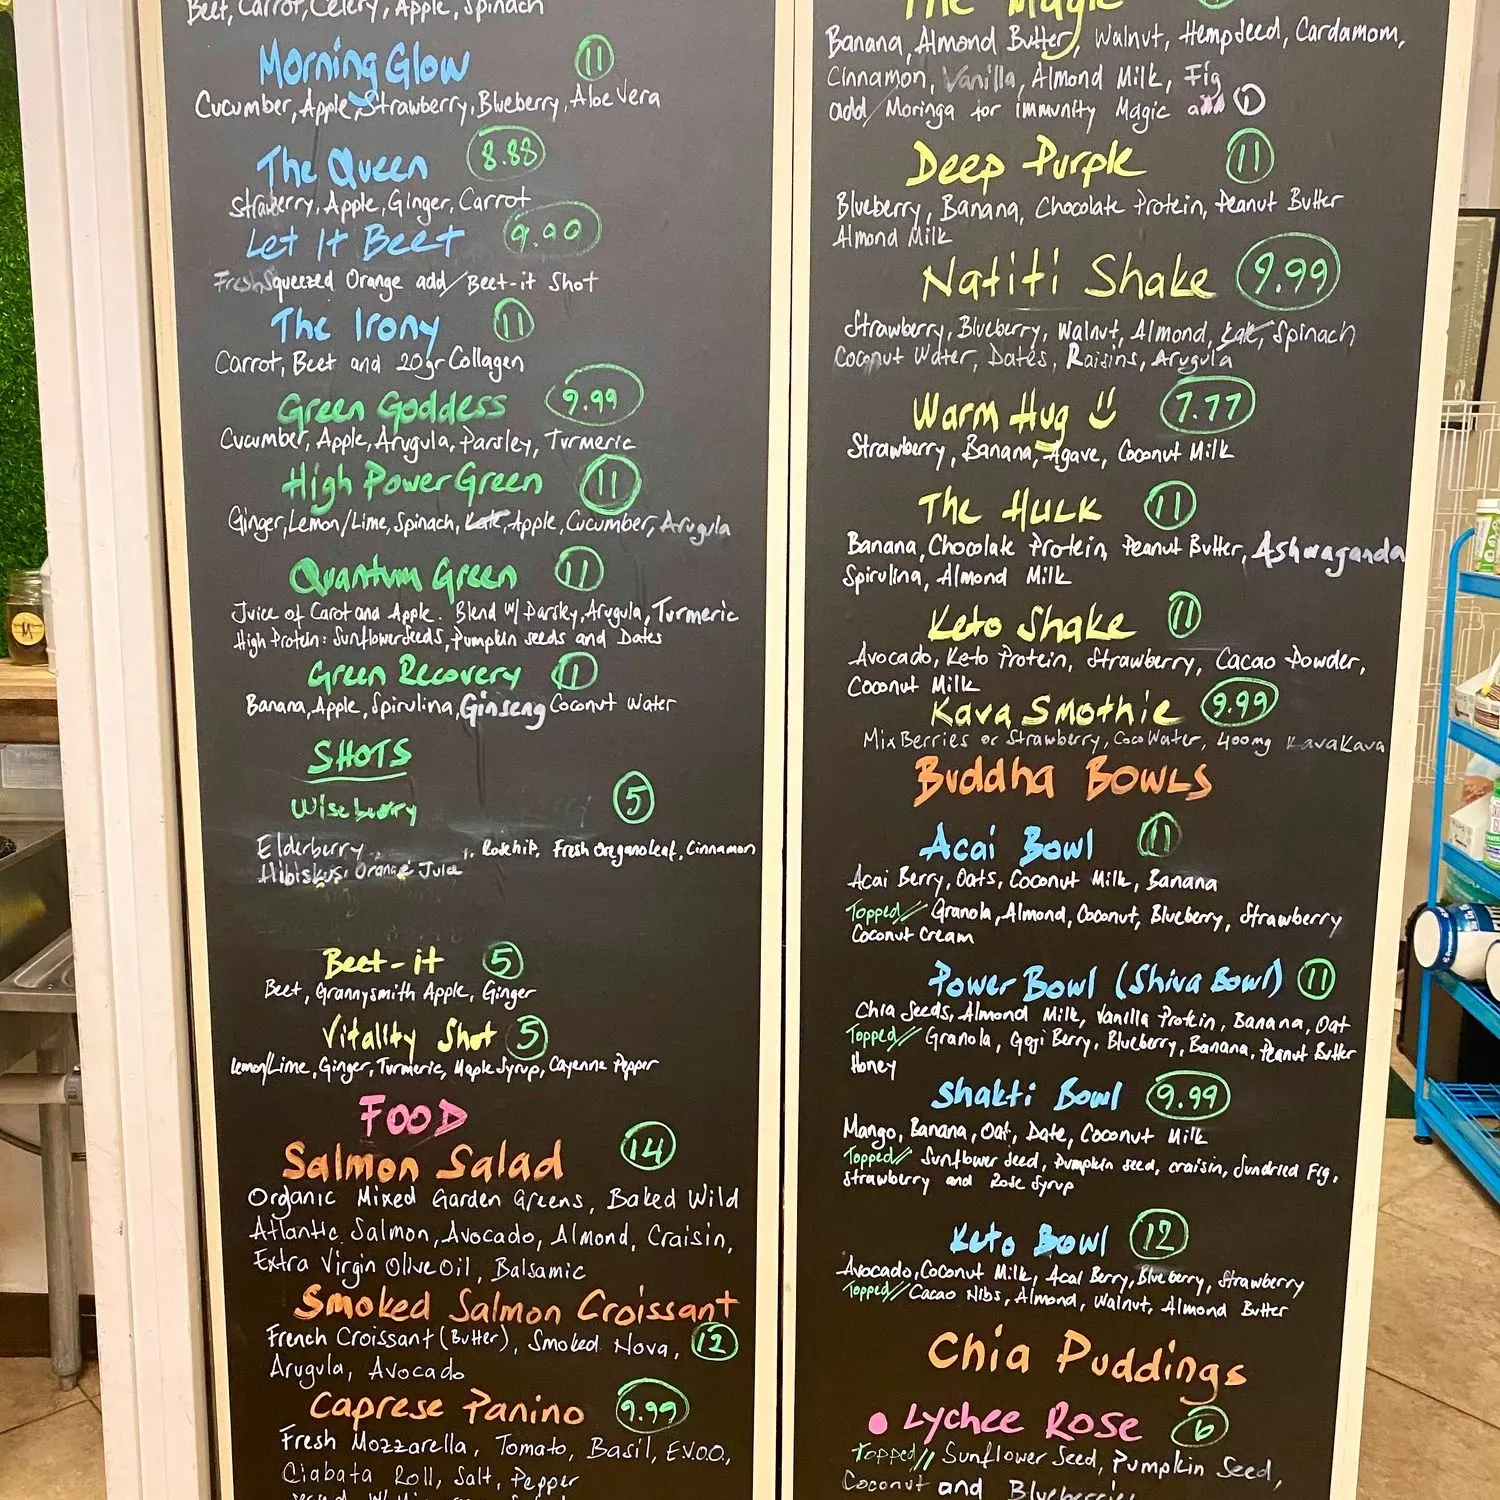 Beet, Carrot, Celery, Apple, Spinach
Morning Glow 11
Cucumber, Apple, Strawberry, Blueberry, Aloe Vera
The Queen 8.88
Strawberry, Apple, Ginger, Carrot
Let It Beet 9.90
Fresh Squeezed Orange add/Beet-it Shot
The Irony 11
Carrot, Beet and 20gr Collagen
Green Goddess 9.99
Cucumber, Apple, Arugula, Parsley, Turmeric
High Power Green 11
Ginger, Lemon/Lime, Spinach, Kale, Apple, Cucumber, Arugula
Quantum Green 11
Juice of Carot and Apple. Blend W/ Parsley, Arugula, Turmeric
High Protein: Sunflower Seeds, Pumpkin seeds and Dates
Green Recovery 11
Banana, Apple, Spirulina, Ginseng Coconut Water
SHOTS
Wiseberry 5
Elderberry, Rosehip, Fresh Oregano leaf, Cinnamon
Hibiskus, Orange Juice
Beet-it 5
Beet, Grannysmith Apple, Ginger
Vitality Shot 5
Lemon/Lime, Ginger, Turmeric, Maple Syrup, Cayenne Pepper
FOOD
Salmon Salad 14
Organic Mixed Garden Greens, Baked Wild
Atlantic Salmon, Avocado, Almond, Craisin,
Extra Virgin Olive Oil, Balsamic
Smoked Salmon Croissant
French Croissant (Butter), Smoked Nova, 12
Arugula, Avocado
Caprese Panino 9.99
Fresh Mozzarella, Tomato, Basil, E.V.O.O.,
Ciabata Roll, Salt, Pepper
The Magic
Banana, Almond Butter, Walnut, Hempseed, Cardamom,
Cinnamon, Vanilla, Almond Milk, Fig
add/Moringa for immunity Magic add 1
Deep Purple 11
Blueberry, Banana, Chocolate Protein, Peanut Butter
Almond Milk
Natiti Shake 9.99
Strawberry, Blueberry, Walnut, Almond, Kale, Spinach
Coconut Water, Dates, Raisins, Arugula
Warm Hug 7.77
Strawberry, Banana, Agave, Coconut Milk
The Hulk 11
Banana, Chocolate Protein, Peanut Butter, Ashwaganda
Spirulina, Almond Milk
Keto Shake 11
Avocado, Keto Protein, Strawberry, Cacao Powder,
Coconut Milk
Kava Smothie 9.99
Mix Berries or Strawberry, Coco Water, 400mg Kava Kava
Buddha Bowls
Acai Bowl 11
Acai Berry, Oats, Coconut Milk, Banana
Topped// Granola, Almond, Coconut, Blueberry, Strawberry
Coconut Cream
Power Bowl (Shiva Bowl) 11
Chia Seeds, Almond Milk, Vanilla Protein, Banana, Oat
Topped// Granola, Goji Berry, Blueberry, Banana, Peanut Butter
Honey
Shakti Bowl 9.99
Mango, Banana, Oat, Date, Coconut Milk
Topped// Sunflower Seed, Pumpkin seed, craisin, Sundried Fig,
Strawberry and Rose Syrup
Keto Bowl 12
Avocado, Coconut Milk, Acai Berry, Blueberry, Strawberry
Topped// Cacao Nibs, Almond, Walnut, Almond Butter
Chia Puddings
Lychee Rose 6
Topped// Sunflower Seed, Pumpkin Seed,
Coconut and Blueberries